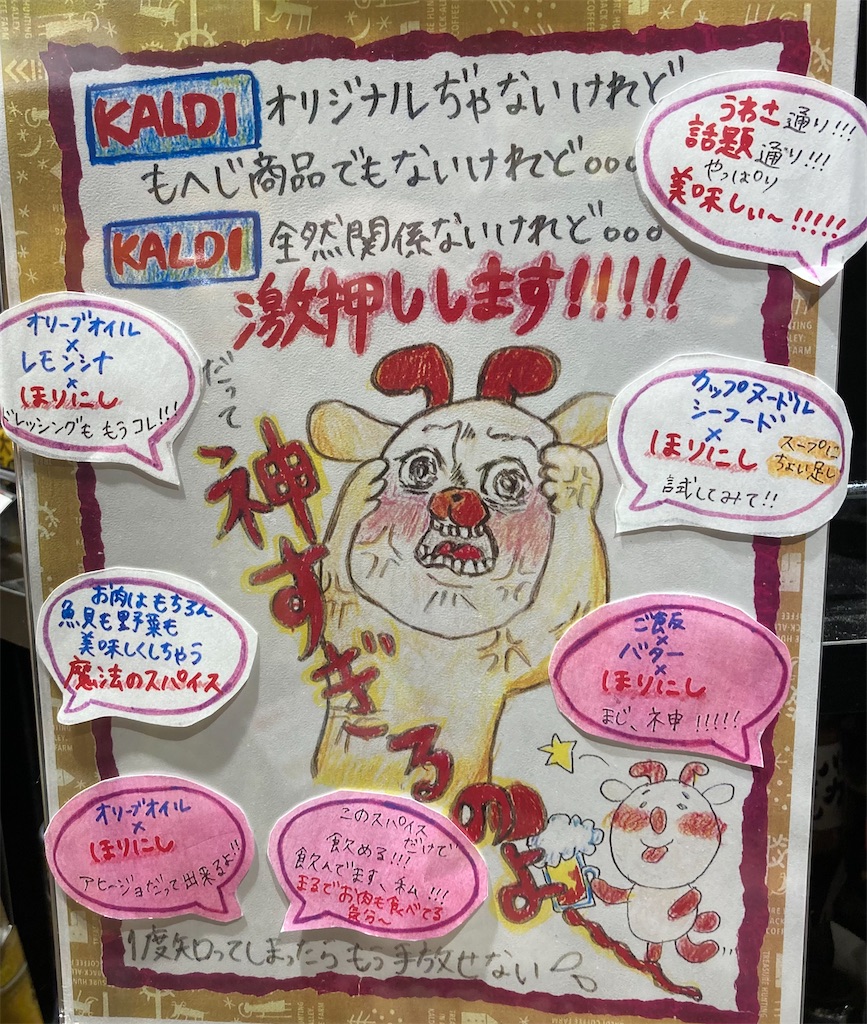 KALDI オリジナルぢゃないけれど
もへじ商品でもないけれど。。。
KALDI 全然関係ないけれど。。。
激押しします!!!!!
うわさ通り!!!
話題通り!!!
やっぱり
美味しぃ〜!!!!!
オリーブオイル
×
レモンシナ
×
ほりにし
ドレッシングも もうコレ!!!
だって
神すぎーるのよ
カップヌードル
シーフード
×
ほりにし
スープに
ちょい足し
試してみて!!
お肉はもちろん
魚貝も野菜も
美味しくしちゃう
魔法のスパイス
ご飯
×
バター
×
ほりにし
まじ、神!!!!!
オリーブオイル
×
ほりにし
アヒージョだって出来るよ!!
このスパイス
だけで
飲める!!!
飲んでます、私!!!
まるでお肉も食べてる
気分〜
1度知ってしまったらもう手放せない